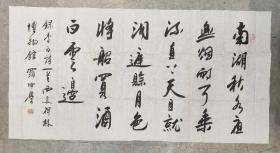 南湖秋水夜
無烟耐可乘
流直上天且就
洞庭賒月色
將船買酒
白雲邊
錄李白詩一首西安碑林
博物館